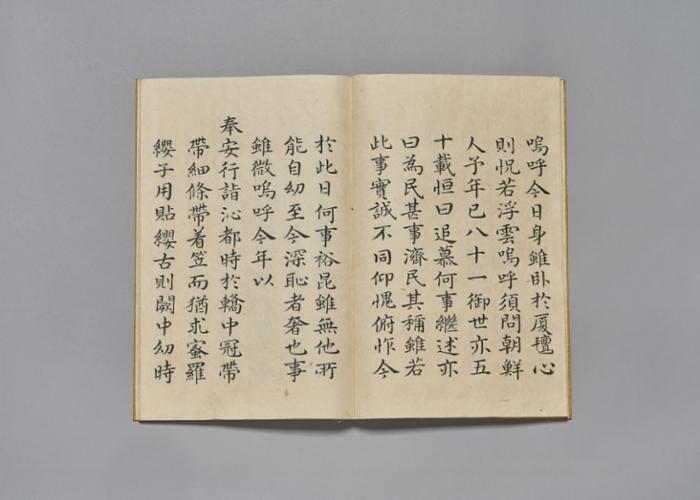 嗚呼今日身雖卧於厦氊心
則怳若浮雲嗚呼須問朝鮮
人予年已八十一御世亦五
十載恒曰追慕何事繼述亦
曰為民甚事濟民其稱雖若
此事實誠不同仰愧俯怍今
於此日何事裕昆雖無他所
能自幼至今深恥者奢也事
雖微嗚呼今年以
奉安行詣沁都時於轎中冠帶
帶細條帶着笠而猶求蜜羅
纓子用貼纓古則闕中幼時